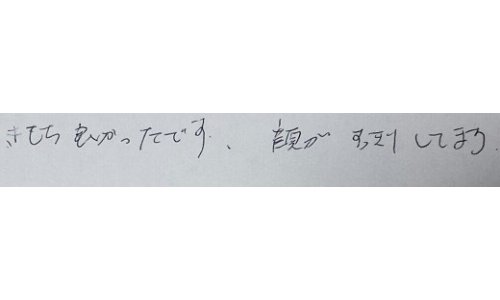 きもち良かったです、顔がすっきりしてます.